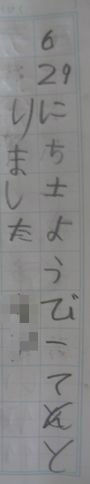 629にち土ようび一てんと
りました